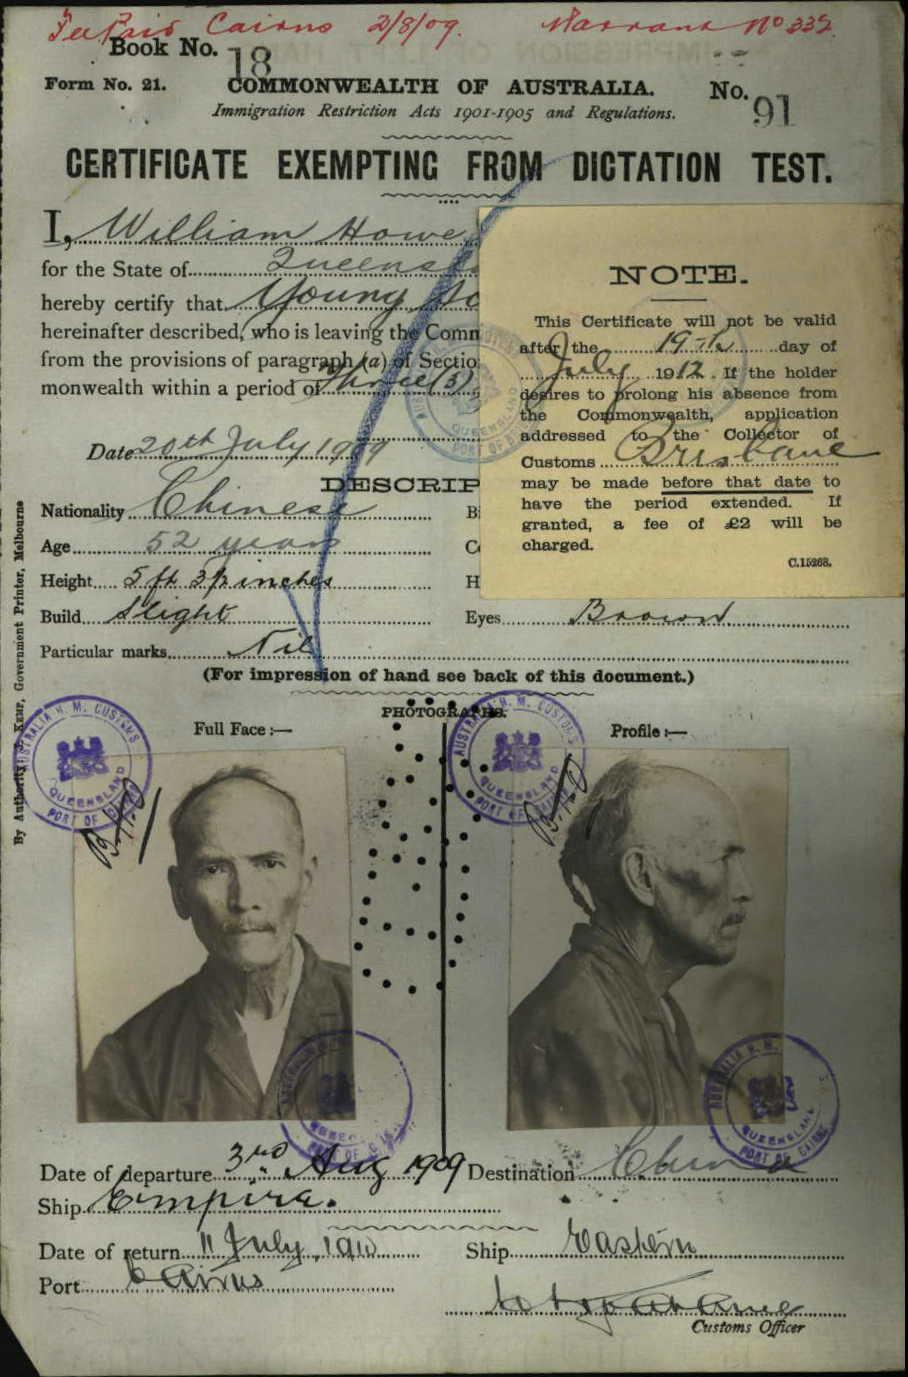 Fee Paid Cairns 2/8/09. Warrant No 332.
Book No. 18
Form No. 21. COMMONWEALTH OF AUSTRALIA. No. 91
Immigration Restriction Acts 1901-1905 and Regulations.
CERTIFICATE EXEMPTING FROM DICTATION TEST.
I, William Howe
for the State of Queensl
hereby certify that Young
hereinafter described, who is leaving the Comm
from the provisions of paragraph (a) of Sectio
monwealth within a period of Three (3)
Date 20th July 1909
DESCRIP
Nationality Chinese
Age 52 years
Height 5 ft 3½ inches
Build Slight Eyes Brown
Particular marks Nil
(For impression of hand see back of this document.)
NOTE.
This Certificate will not be valid
after the 19th day of
July 1912. If the holder
desires to prolong his absence from
the Commonwealth, application
addressed to the Collector of
Customs Brisbane
may be made before that date to
have the period extended. If
granted, a fee of £2 will be
charged.
C.15268.
By Authority: J. KEMP, Government Printer, Melbourne
PHOTOGRAPHS.
Full Face :— Profile :—
AUSTRALIA H. M. CUSTOMS
QUEENSLAND
PORT OF CAIRNS
AUSTRALIA H. M. CUSTOMS
QUEENSLAND
PORT OF CAIRNS
AUSTRALIA H. M.
QUEENSLAND
PORT OF CAIRNS
Date of departure 3rd Aug 1909 Destination China
Ship Empire.
Date of return 11 July, 1910 Ship Eastern
Port Cairns
Customs Officer